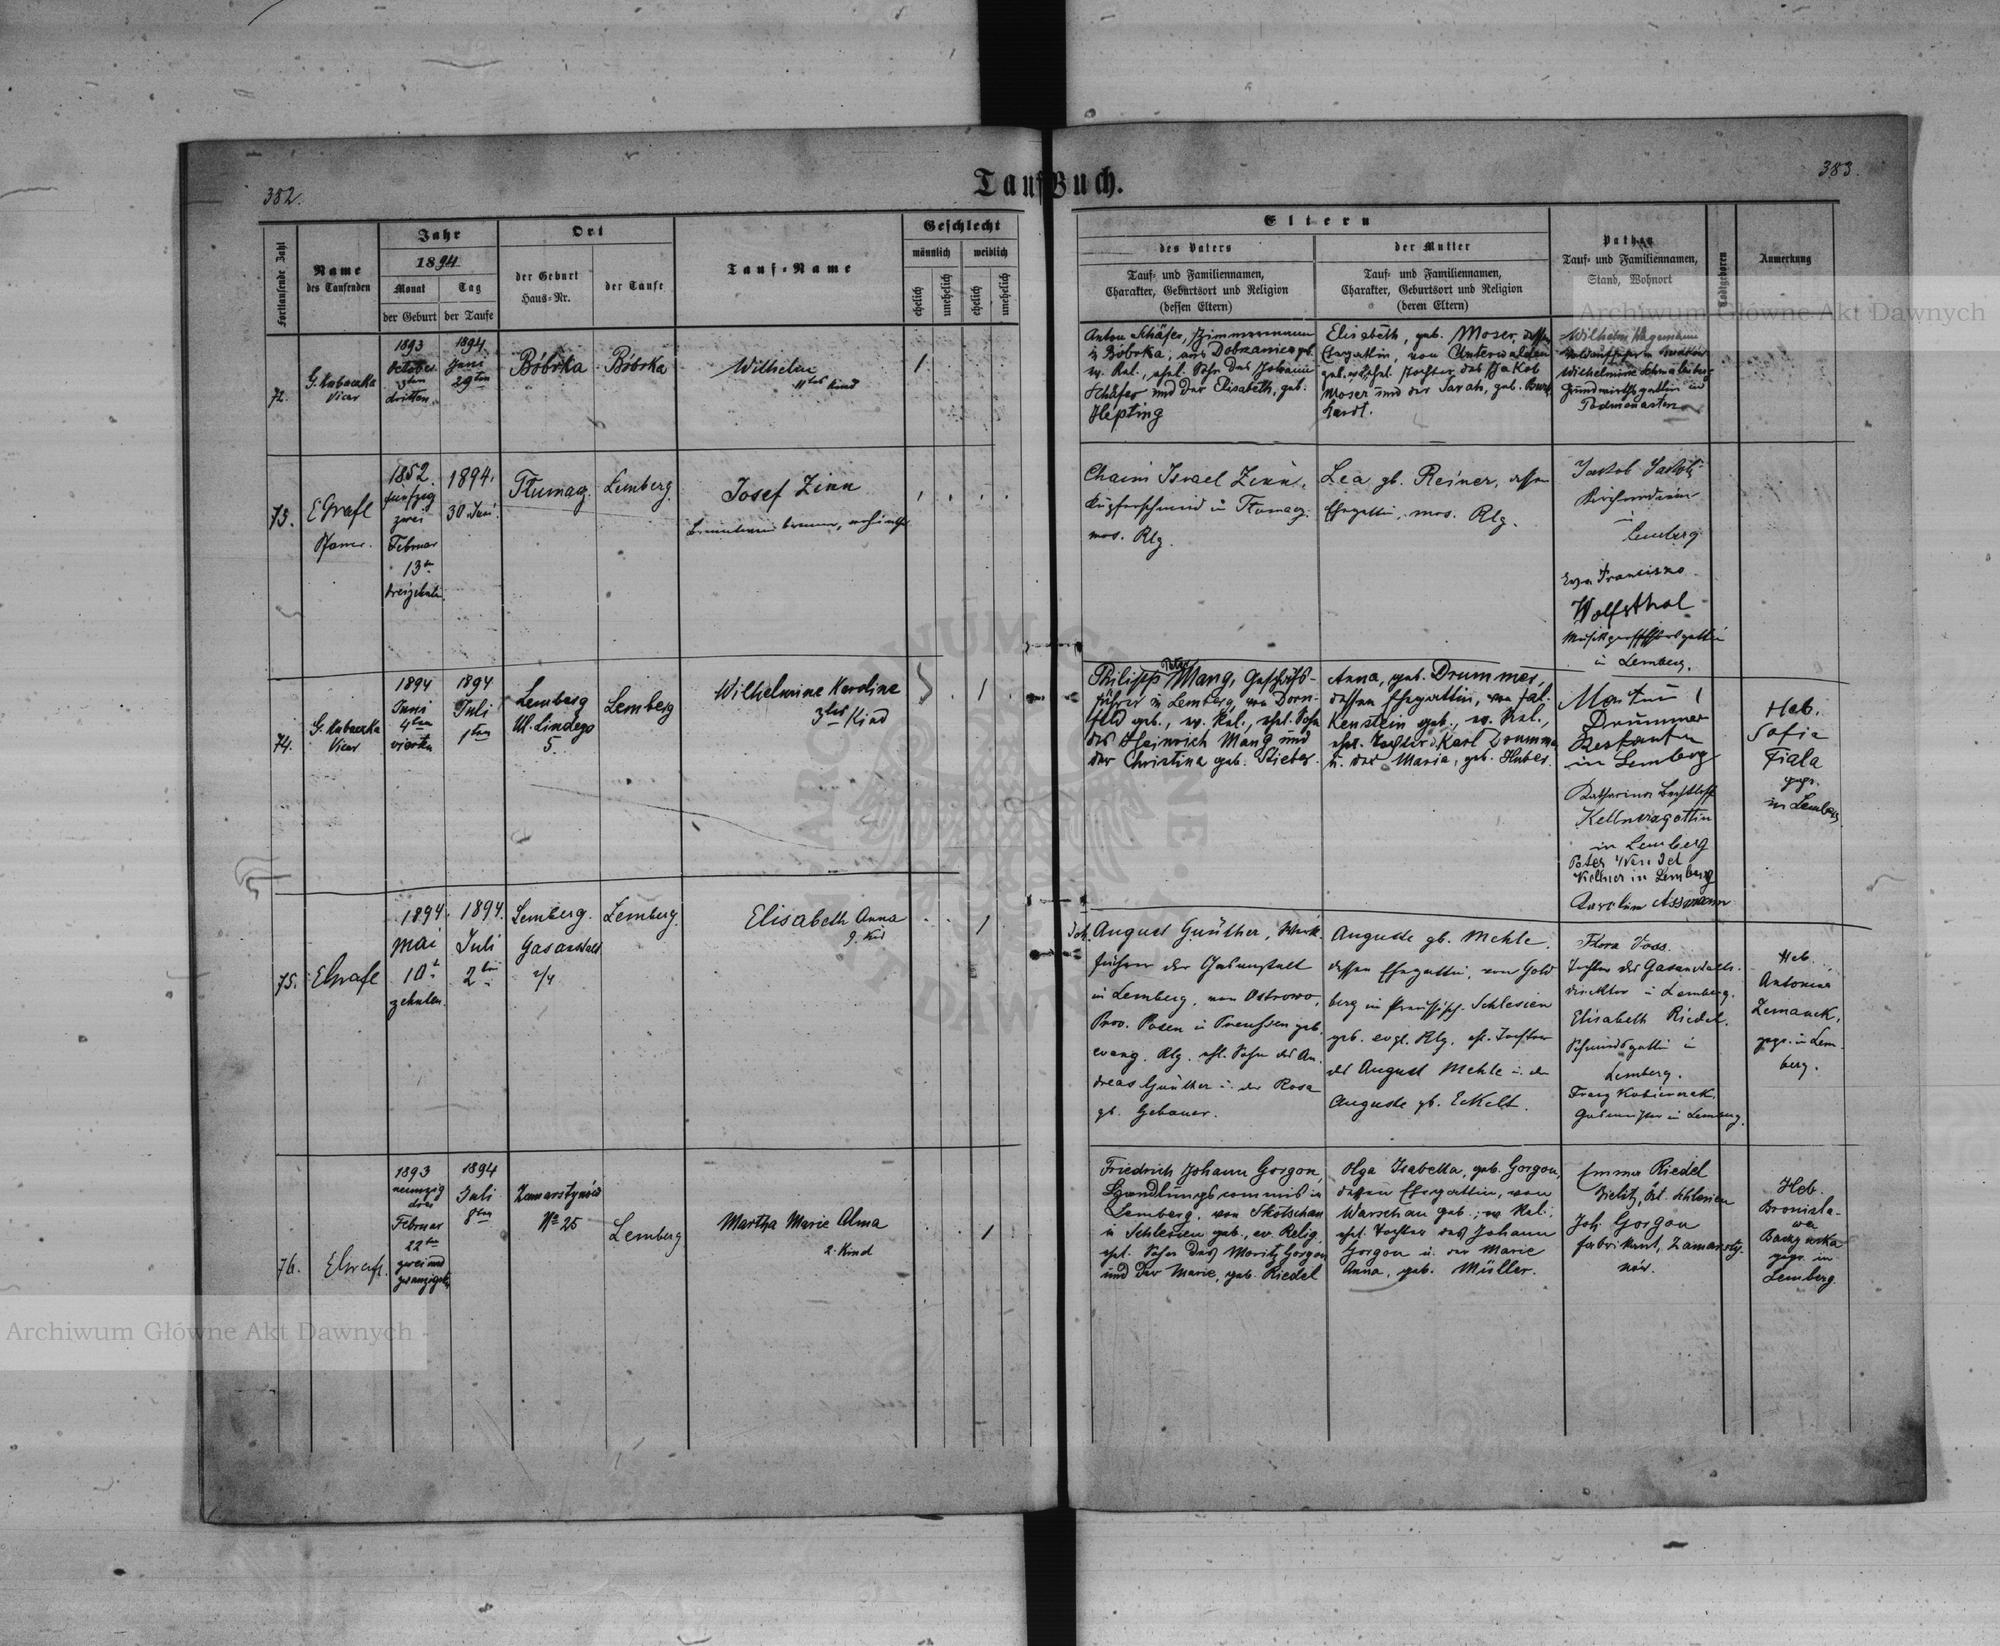 352.
383.
Tauf Buch.
Fortlaufende Zahl
Name
des Taufenden
Jahr
1894
Monat
der Geburt
Tag
der Taufe
Ort
der Geburt
Haus-Nr.
der Taufe
Tauf-Name
Geschlecht
männlich
weiblich
ehelich
unehelich
ehelich
unehelich
Eltern
des Vaters
Tauf- und Familiennamen,
Charakter, Geburtsort und Religion
(dessen Eltern)
der Mutter
Tauf- und Familiennamen,
Charakter, Geburtsort und Religion
(deren Eltern)
Pathen
Tauf- und Familiennamen,
Stand, Wohnort
Todtgeboren
Anmerkung
Archiwum Główne Akt Dawnych
72.
G. Kubaczka
Vicar
1893
October
3ten
dritten
1894
Juni
29ten
Bóbrka
Bóbrka
Wilhelm
11tes Kind
1
Anton Schäfer, Zimmermann
in Bóbrka, aus Dobrzanica gb.
ev. Rel., ehel. Sohn des Johann
Schäfer und der Elisabeth, geb.
Hepting
Elisabeth, geb. Moser, dessen
Ehegattin, von Unterwalden
geb., ehel. Tochter des Jakob
Moser und der Sarah, geb. Burk
hardt.
Wilhelm Hagemann
Wilhelmine
Grundwirthsgattin in
Podmonasterz
73.
E Grafl
Pfarrer.
1852.
fünfzig
zwei
Februar
13ten
dreizehnten
1894.
30. Juni.
Tłumacz
Lemberg.
Josef Zinn
Chaim Israel Zinn,
Kupferschmied in Tłumacz.
mos. Rlg.
Lea gb. Reiner, dessen
Ehegattin, mos. Rlg.
Jakob
Kirchendiener
in
Lemberg
Franciska
Wolfsthal
in Lemberg.
74.
G. Kubaczka
Vicar
1894
Juni
4ten
vierten
1894
Juli
1ten
Lemberg
Ul. Lindego
5.
Lemberg
Wilhelmine Karoline
3tes Kind
1
Philipp Peter Mang, Geschäfts-
führer in Lemberg, von Dorn-
feld geb., ev. Rel., ehel. Sohn
des Heinrich Mang und
der Christina geb. Stieber.
Anna, geb. Drummer,
dessen Ehegattin, von Fal-
kenstein geb., ev. Rel.,
ehel. Tochter d. Karl Drummer
u. der Maria, geb. Huber.
Martin
Drummer
in Lemberg
Katharina Bechtloff
Kellnersgattin
in Lemberg
Peter Wendel
Kellner in Lemberg
Assmann
Heb.
Sofie
Fiala
gepr.
in Lemberg.
75.
E Grafl
1894.
Mai
10t.
zehnten.
1894.
Juli
2ten
Lemberg.
Gasanstalt
2/4
Lemberg.
Elisabeth Anna
9. Kind
1
Joh. August Günther, Werk-
führer der Gasanstalt
in Lemberg, von Ostrowo,
Prov. Posen in Preussen geb.
evang. Rlg. ehl. Sohn des An-
dreas Günther u. der Rosa
gb. Gebauer.
Auguste gb. Mehle.
dessen Ehegattin, von Gold
berg in Preussisch-Schlesien
geb. evgl. Rlg. ehl. Tochter
des August Mehle u. der
Auguste gb. Eckelt.
Flora Voss.
Tochter des Gasanstalts-
direktor in Lemberg.
Elisabeth Riedel.
Schmidsgattin in
Lemberg.
Franz
Gasmeister in Lemberg.
Heb.
Antonina
Zemanek,
gepr. in Lem-
berg.
76.
E Grafl.
1893
neunzig
drei
Februar
22ten
zwei und
zwanzigsten
1894
Juli
8ten
Zamarstynów
No 25
Lemberg
Martha Marie Alma
2. Kind
1
Friedrich Johann Gorgon,
Handlungscommis in
Lemberg, von Skotschau
in Schlesien geb., ev. Relig.
ehel. Sohn des Moritz Gorgon
und der Marie, geb. Riedel
Olga Isabella, geb. Gorgon,
dessen Ehegattin, von
Warschau geb., ev. Rel.,
ehel. Tochter des Johann
Gorgon u. der Marie
Anna, geb. Müller.
Emma Riedel
Bielitz, Öst. Schlesien
Joh. Gorgon
Fabrikant, Zamarsty-
nów.
Heb.
Bronisla-
wa
gepr. in
Lemberg.
Archiwum Główne Akt Dawnych